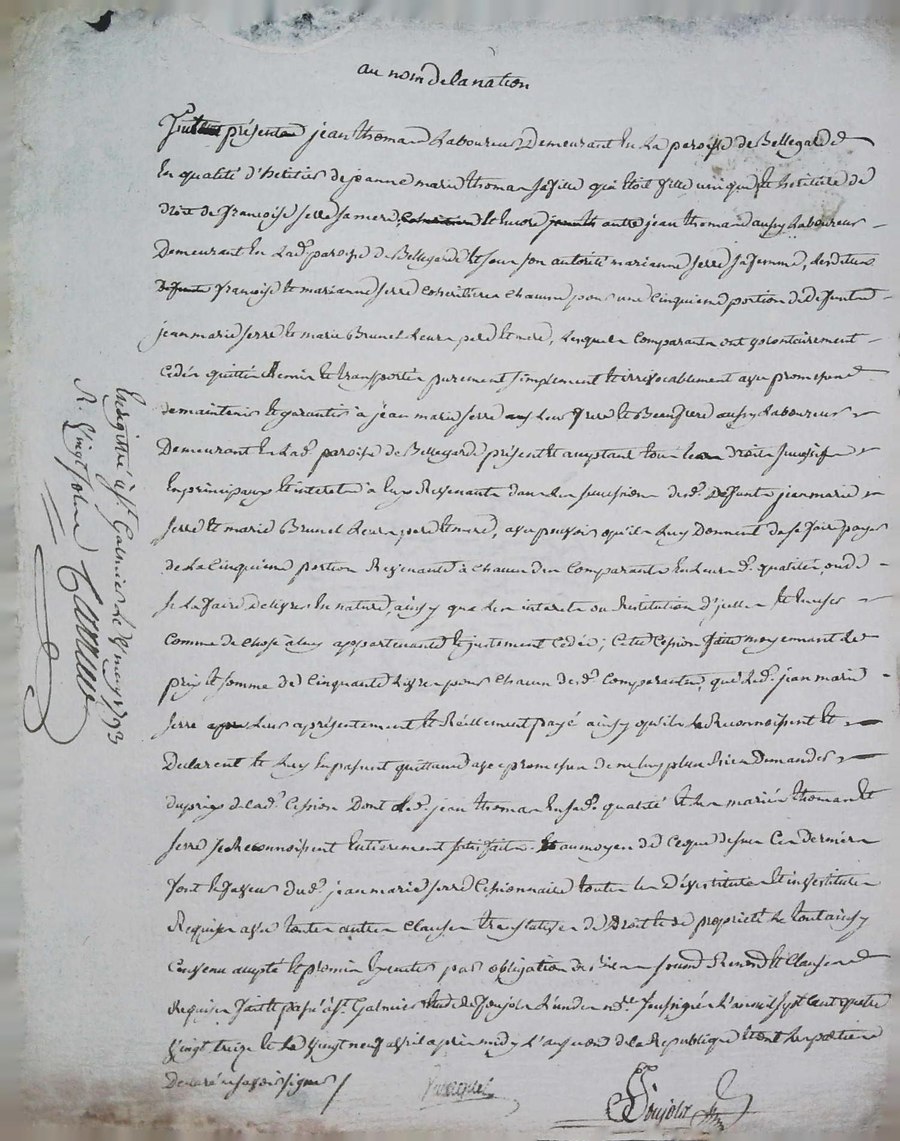 au nom de la nation
présents jean thomas Laboureur Demeurant En La paroisse de Bellegarde
En qualité d'heritier de jeanne marie thomas sa fille qui étoit fille unique Et heritiere de
droit de françoise serre sa mere, Et Encore autre jean thomas aussy Laboureur
Demeurant En Lad. paroisse de Bellegarde Et sous son autorité marianne serre sa femme, desdittes
françoise Et marianne serre Coheritieres Chacune pour une Cinquieme portion de defunts
jean marie serre Et marie Brunel Leurs pere Et mere, Lesquels Comparants ont volontairement
Cedés quittés Remis Et transportés purement simplement Et irrevocablement avec promesse
de maintenir Et garantir à jean marie serre Leur frere Et Beaufrere aussy Laboureur
Demeurant En Lad. paroisse de Bellegarde présent Et acceptant tous droits successifs
En principaux Et interets à Eux Revenants dans Les successions desd. Defunts jean marie
serre Et marie Brunel Leurs pere Et mere, avec pouvoir qu'ils Luy Donnent de se faire payer
de La Cinquieme portion Revenante à Chacun des Comparants En Leurs d. qualités, ou de
se La faire delivrer En nature, ainsy que Les interets ou Restitution d'jcelle Et En user
Comme de Chose à Luy appartenante Et justement Cedée; Cette Cession faite moyennant Le
prix Et somme de Cinquante Livres pour Chacun desd. Comparants, que Led. jean marie
serre Leur a présentement Et Réellement payé ainsy qu'ils Le Reconnoissent Et
Declarent Et Luy En passent quittance avec promesse de ne Luy plus Rien Demander
du prix de Lad. Cession Dont Led. jean thomas En sad. qualité Et Les mariés thomas Et
serre se Reconnoissent Entierement satisfaits. Et au moyen de Ce que dessus Ces Derniers
font En faveur dud. jean marie serre Cessionnaire toutes Les Dévestitures Et investitures
Requises avec toutes autres Clauses translatives de Droit Et de proprieté Le tout ainsy
Convenu accepté Et promis Executer par obligation de biens soumis Renonc. Et Clauses
Requises fait Et passé à St. Galmier Etude de Ponjolz L'un des no.res soussignés L'an mil sept Cent quatre
vingt treize Et Le vingt neuf avril après midy L'an second de La Republique Et ont Les parties
Declaré ne savoir signer
Ponjolz
Enregistré à St. Galmier Le 8 may 1793
R. vingt sols